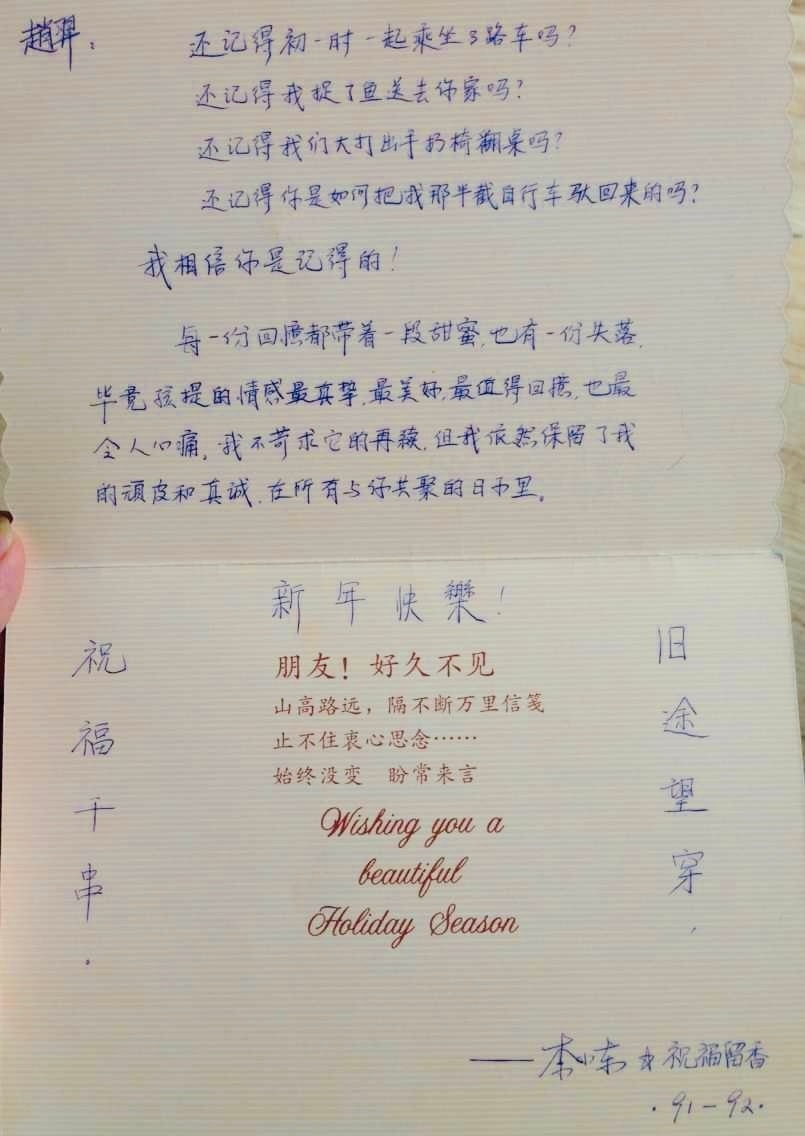 趙羿：
还记得初一时一起乘坐3路车吗？
还记得我捉了鱼送去你家吗？
还记得我们大打出手扔椅翻桌吗？
还记得你是如何把我那半截自行车驮回来的吗？
我相信你是记得的！
每一份回憶都带着一段甜蜜，也有一份失落，
毕竟孩提的情感最真挚，最美好，最值得回憶，也最
令人心痛，我不苛求它的再续，但我依然保留了我
的顽皮和真诚，在所有与你共聚的日子里。
新年快樂！
旧途望穿，
祝福千串.
朋友！好久不见
山高路远，隔不断万里信笺
止不住衷心思念……
始终没变 盼常来言
Wishing you a
beautiful
Holiday Season
——李小东 祝福留香
·91—92·